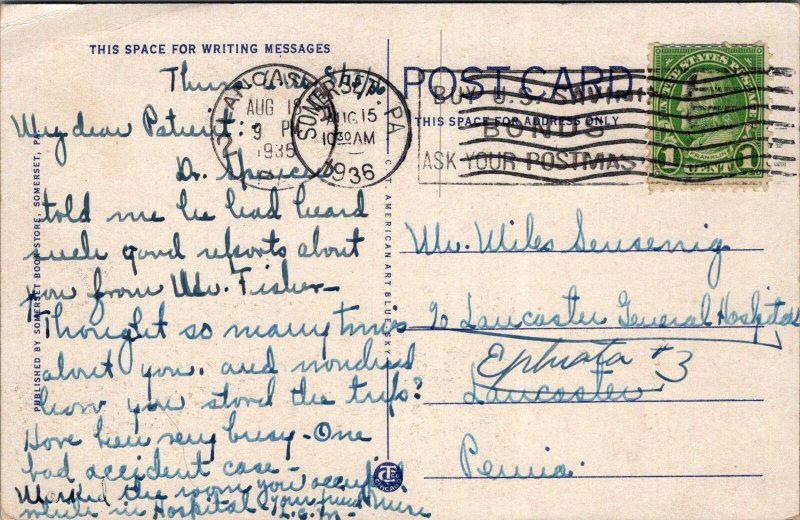 THIS SPACE FOR WRITING MESSAGES
My dear Patient:
Dr. Speicer
told me he had heard
such good reports about
you from Mr. Fisher-
Thought so many times
about you. and wondered
how you stood the trip?
Have been very busy - One
bad accident case-
Marked the room you occupied
while in Hospital. your friend Nurse
L.E.M-
PUBLISHED BY SOMERSET BOOK STORE, SOMERSET, PA.
C. T. AMERICAN ART BLUE SKY
LANCASTER
AUG 15
9 PM
1935
PA
SOMERSET, PA.
AUG 15
10 30 AM
1936
POST CARD
THIS SPACE FOR ADDRESS ONLY
BUY U.S. SAVINGS
BONDS
ASK YOUR POSTMASTER
UNITED STATES POSTAGE
FRANKLIN
1 CENT 1
Mr. Miles Sensenig
c/o Lancaster General Hospital
Ephrata #3
Lancaster
Penna.